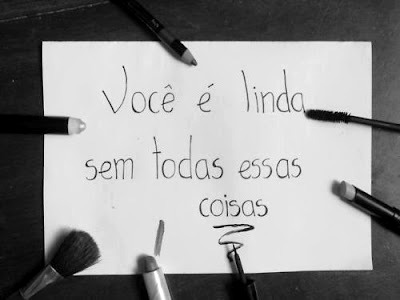 Você é linda
sem todas essas
coisas